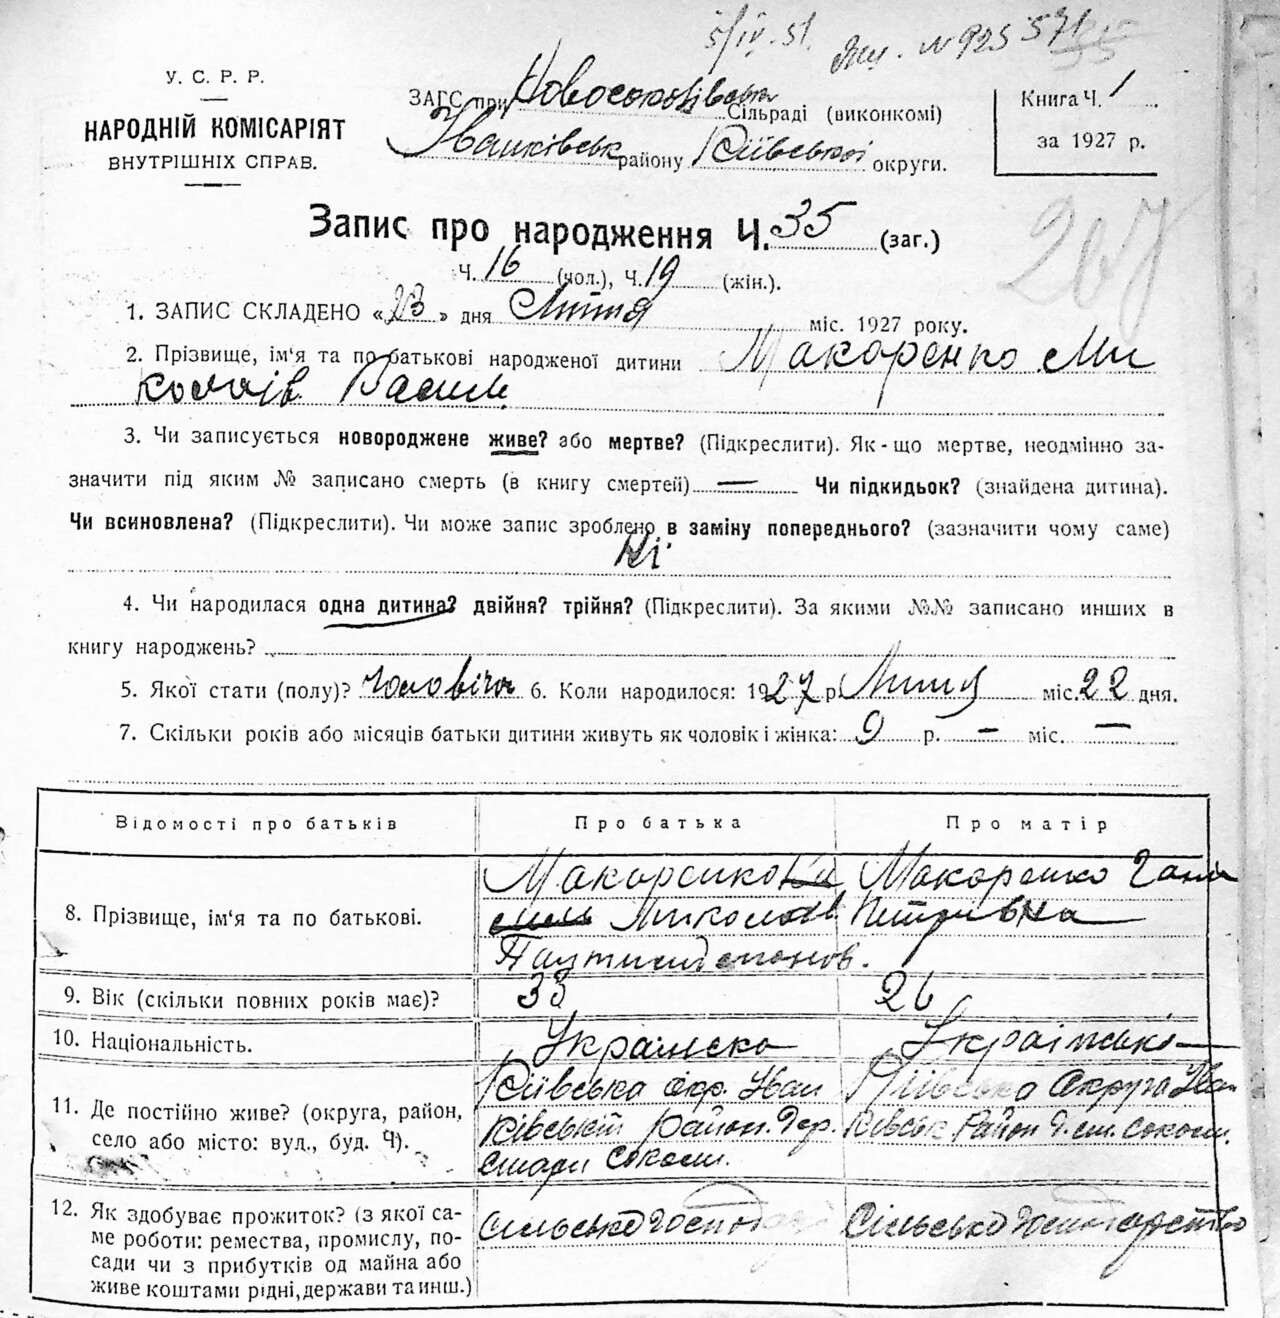 5/IV-51. № 925 571
У. С. Р. Р.
НАРОДНІЙ КОМІСАРІЯТ
ВНУТРІШНІХ СПРАВ.
ЗАГС при Новосоколівській Сільраді (виконкомі)
Іванківськ району Київської округи.
Книга Ч. 1
за 1927 р.
Запис про народження Ч. 35 (заг.)
267
Ч. 16 (чол.), Ч. 19 (жін.).
1. ЗАПИС СКЛАДЕНО «23» дня Липня міс. 1927 року.
2. Прізвище, ім'я та по батькові народженої дитини Макаренко Ми
колаїв Васил
3. Чи записується новороджене живе? або мертве? (Підкреслити). Як-що мертве, неодмінно за-
значити під яким № записано смерть (в книгу смертей) — Чи підкидьок? (знайдена дитина).
Чи всиновлена? (Підкреслити). Чи може запис зроблено в заміну попереднього? (зазначити чому саме)
Ні
4. Чи народилася одна дитина? двійня? трійня? (Підкреслити). За якими №№ записано инших в
книгу народжень?
5. Якої стати (полу)? Чоловіча 6. Коли народилося: 1927 р. Липня міс. 22 дня.
7. Скільки років або місяців батьки дитини живуть як чоловік і жінка: 9 р. — міс. —
Відомості про батьків Про батька Про матір
8. Прізвище, ім'я та по батькові. Макаренко Ва Макаренко Ганна
силь Миколаїв Петрівна
9. Вік (скільки повних років має)? 33 26
10. Національність. Українська Українські
11. Де постійно живе? (округа, район, село або місто: вуд., буд. Ч). Київська окр. Іван Київська Округа Іван
ківській район. Дер. ківськ Район Д. ст. сокол.
Стари Сокол.
12. Як здобуває прожиток? (з якої са- Сільсько Господа Сільсько Господарство
ме роботи: ремества, промислу, по-
сади чи з прибутків од майна або
живе коштами рідні, держави та инш.)